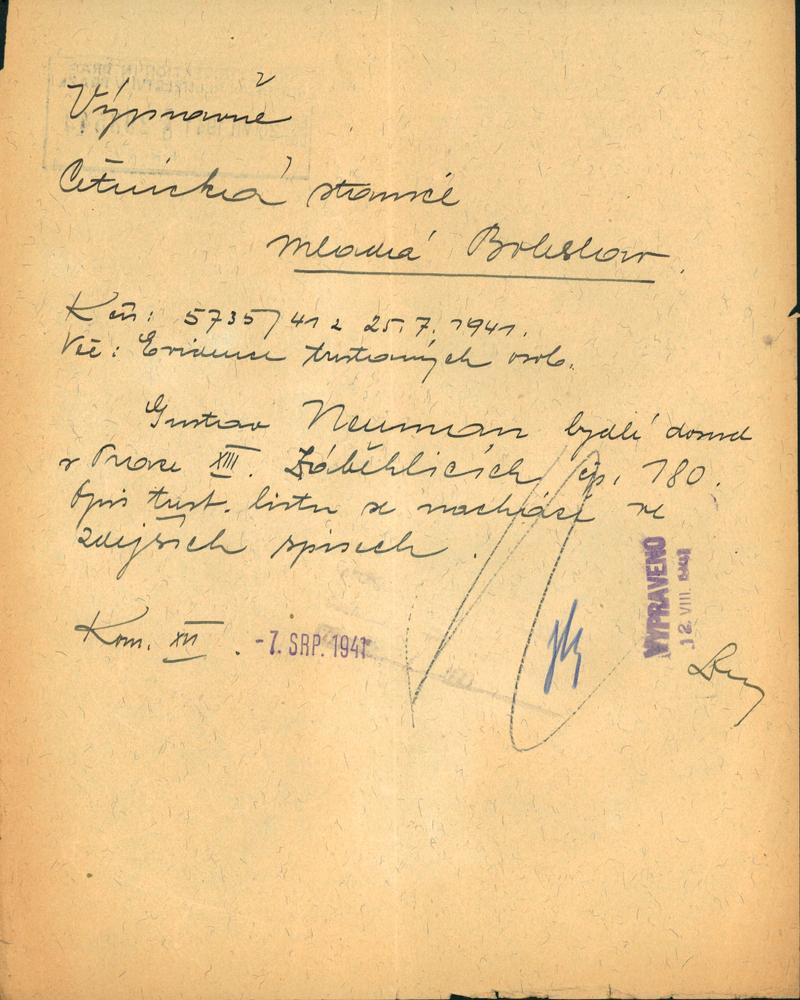 Výpravně
Četnická stanice
Mladá Boleslav.
K čís: 5735/41 z 25.7.1941.
Věc: Evidence trestaných osob.
Gustav Neuman bydlí dosud
v Praze XIII. Záběhlicích čp. 180.
Opis trest. listu se nachází ve
zdejších spisech.
VYPRAVENO
12. VIII. 1941
Kom.
-7. SRP. 1941